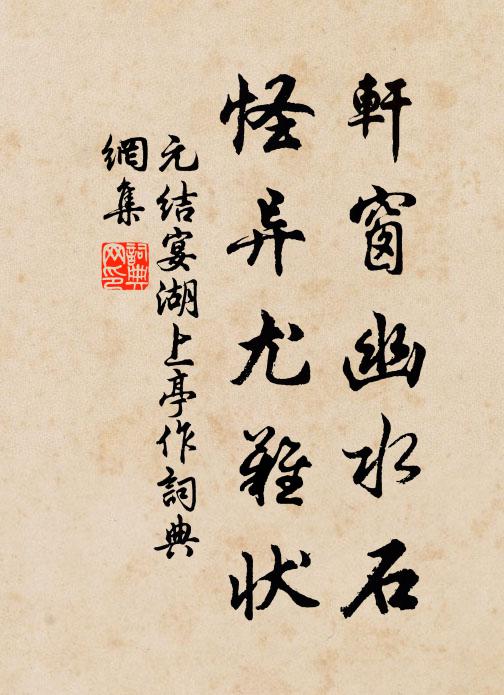 軒窗幽水石
怪异尤難状
元结宴湖上亭作詞典
網集
詞典網印